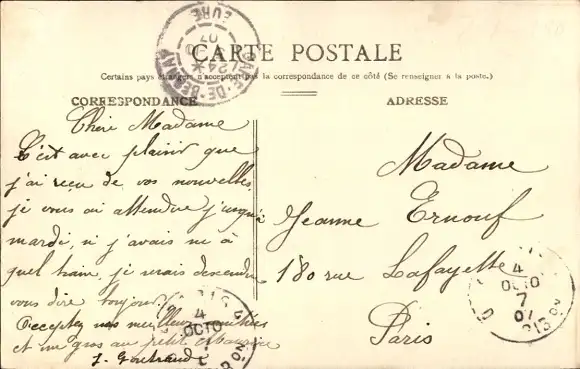 CARTE POSTALE
Certains pays étrangers n'acceptent pas la correspondance de ce côté (Se renseigner à la poste.)
CORRESPONDANCE
ADRESSE
Chère Madame
C'est avec plaisir que
j'ai reçu de vos nouvelles,
je vous ai attendue jusqu'à
mardi, si j'avais su à
quel train, je serais descendu
vous dire bonjour.
Acceptez nos meilleures amitiés
et un gros au petit Maurice
Madame
Jeanne Ernouf
180 rue Lafayette
Paris
4
OCTO
7
07
4
OCTO
EURE